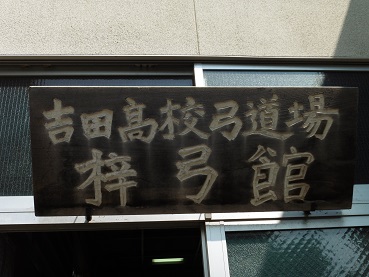 吉田高校弓道場
梓弓館